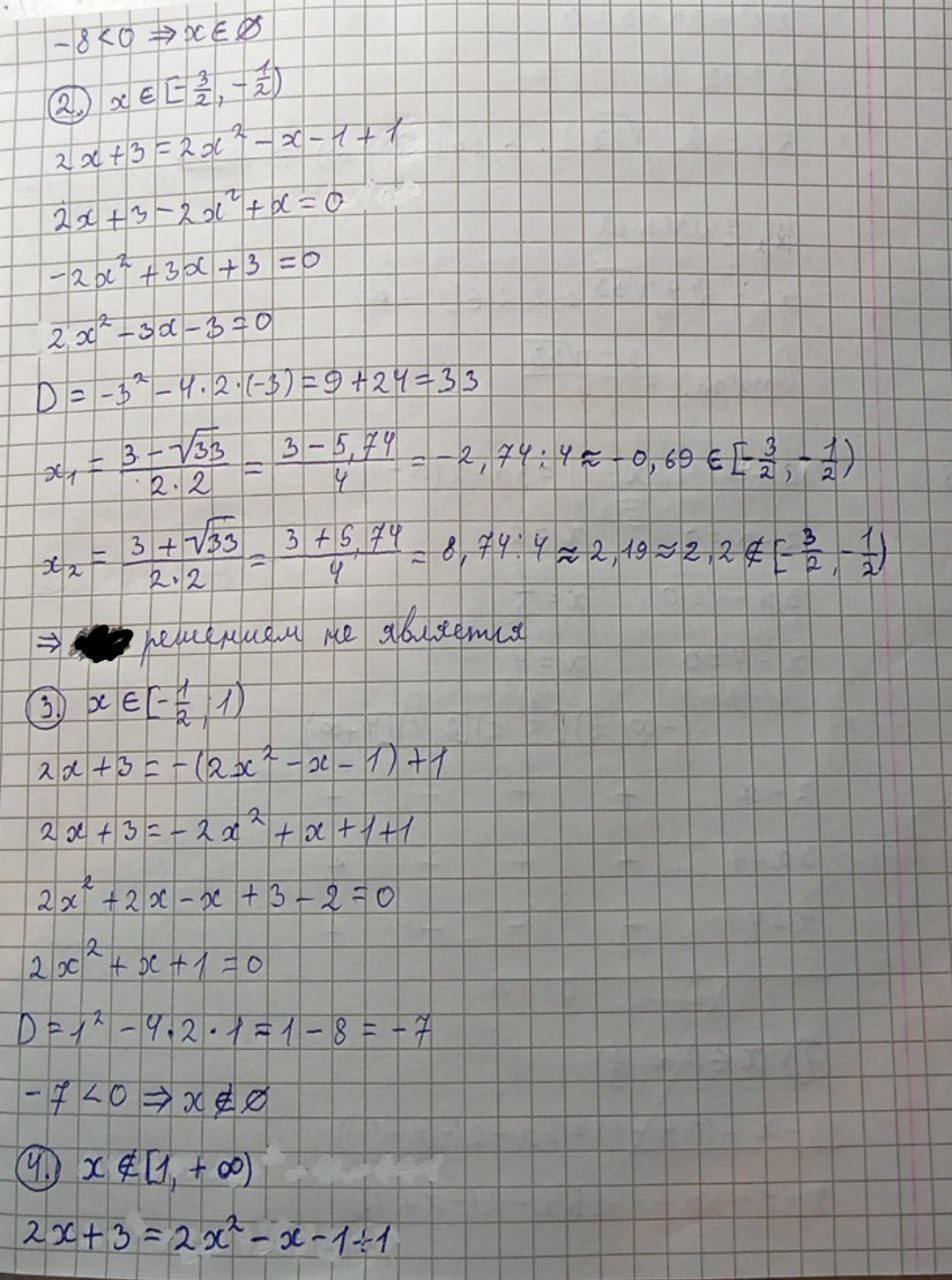 -8<0 ⇒ x∈∅
2. x∈[-3/2, -1/2)
2x+3=2x²-x-1+1
2x+3-2x²+x=0
-2x²+3x+3=0
2x²-3x-3=0
D=-3²-4·2·(-3)=9+24=33
x₁=(3-√33)/(2·2)=(3-5,74)/4=-2,74:4≈-0,69∈[-3/2, -1/2)
x₂=(3+√33)/(2·2)=(3+5,74)/4=8,74:4≈2,19≈2,2∉[-3/2, -1/2)
⇒ решением не является
3. x∈[-1/2, 1)
2x+3=-(2x²-x-1)+1
2x+3=-2x²+x+1+1
2x²+2x-x+3-2=0
2x²+x+1=0
D=1²-4·2·1=1-8=-7
-7<0 ⇒ x∉∅
4. x∉[1, +∞)
2x+3=2x²-x-1+1